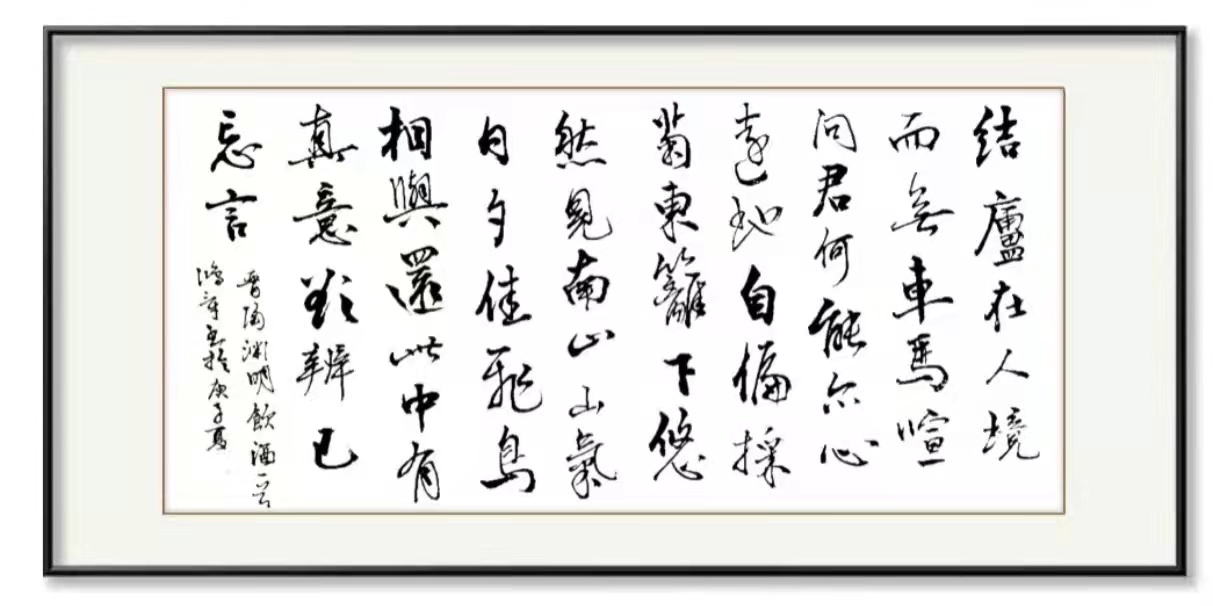 结廬在人境
而無車馬喧
问君何能尔心
遠地自偏採
菊東籬下悠
然見南山山氣
日夕佳飛鳥
相與還此中有
真意欲辨已
忘言
晋陶渊明飲酒一首
書於庚子夏